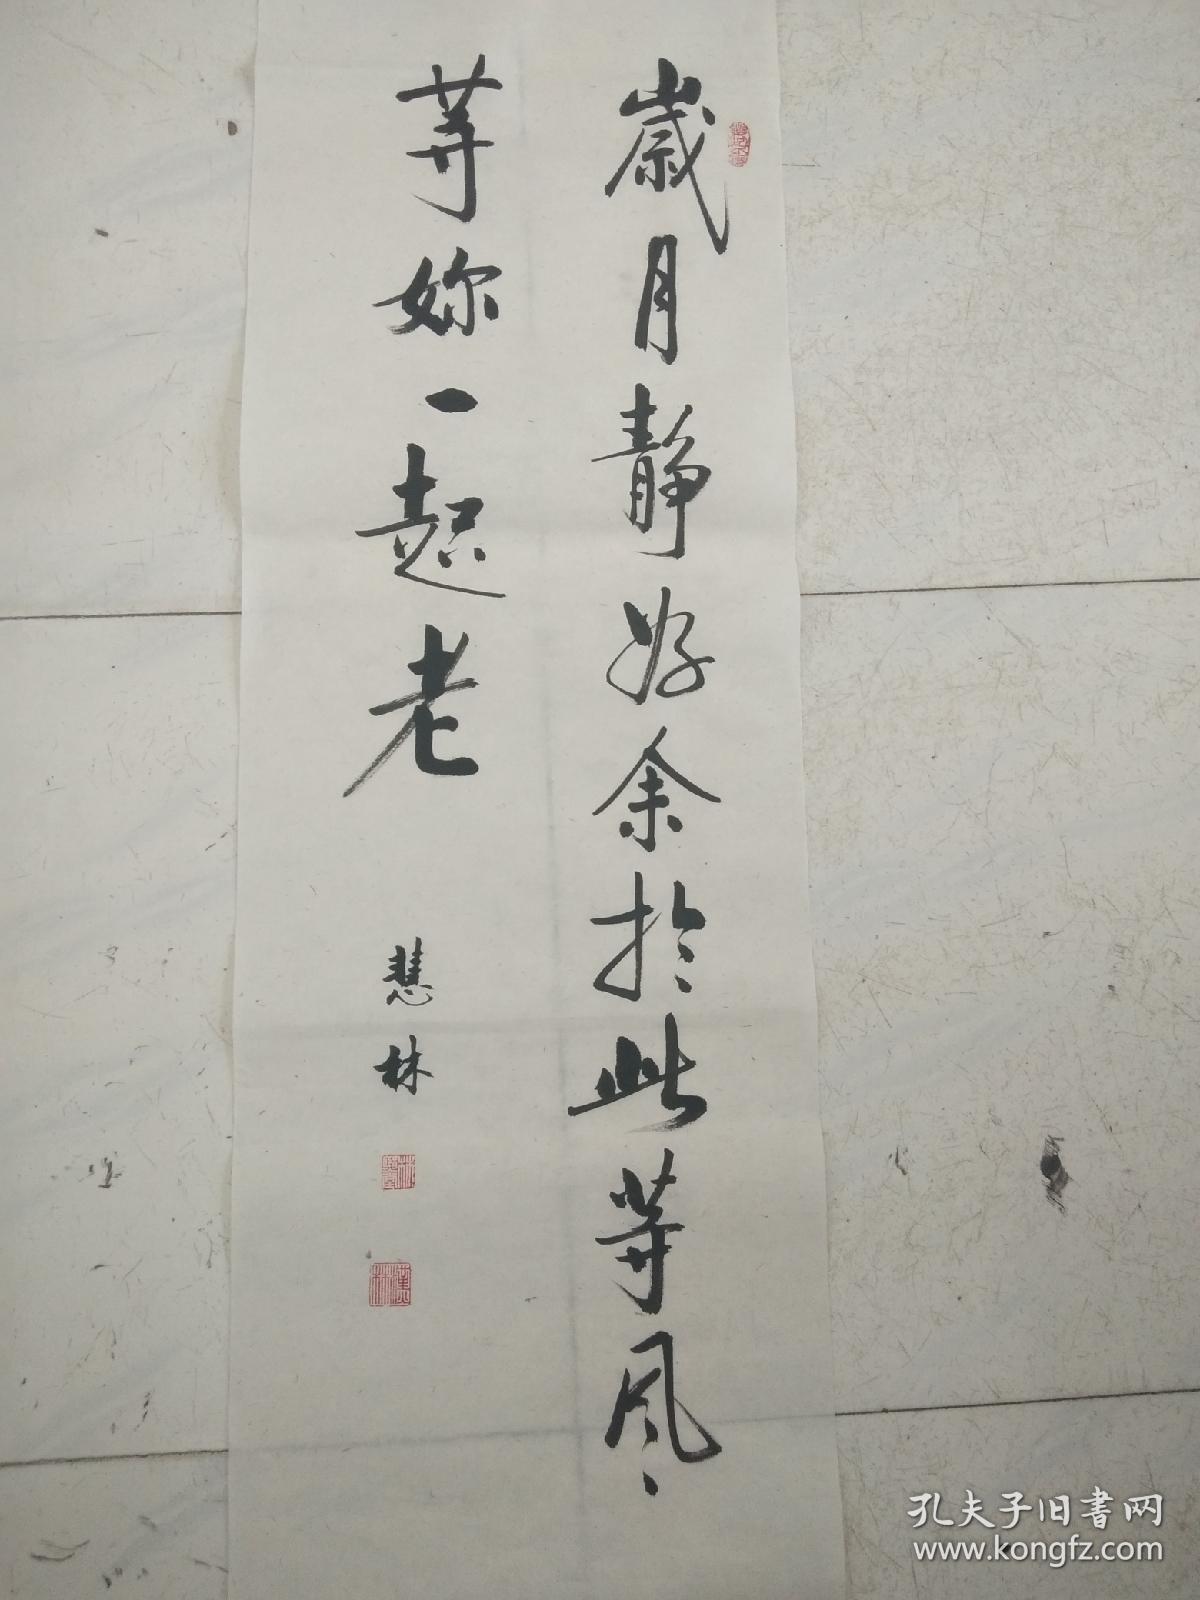 歲月靜好余於此等风
等妳一起老
慧林
孔夫子旧书网
www.kongfz.com